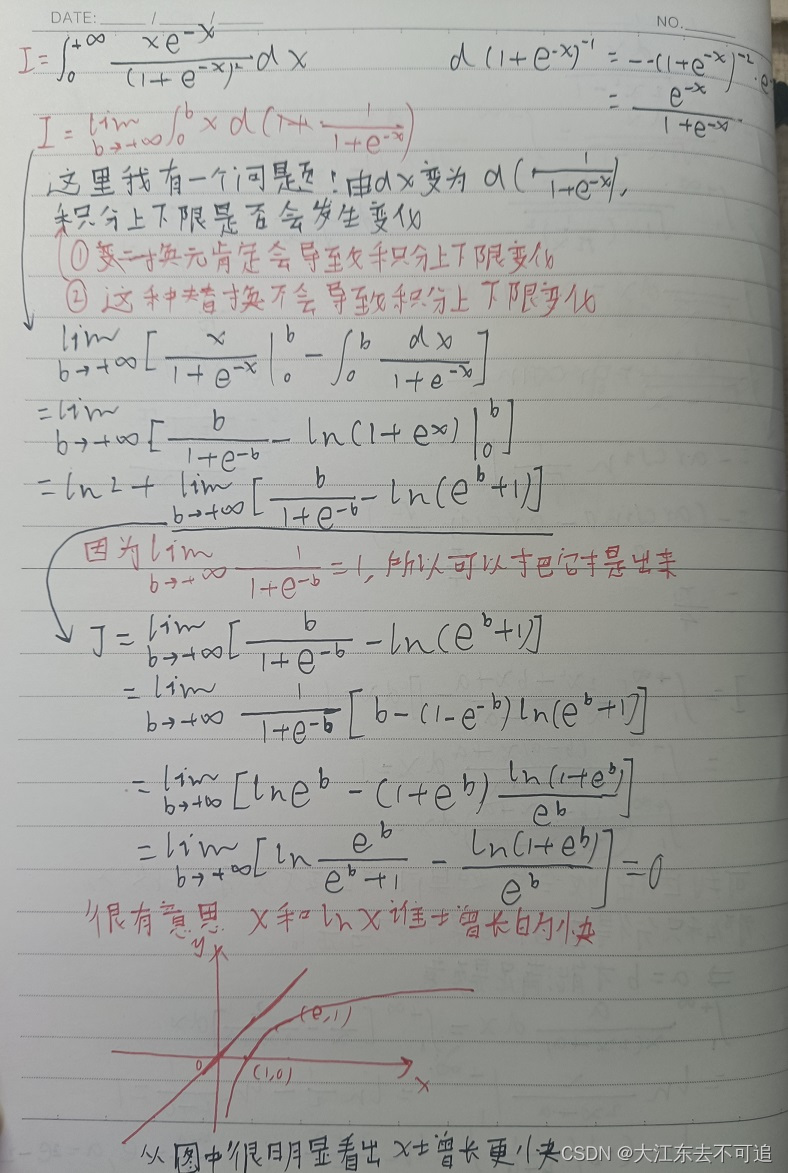 DATE: / /
NO.
I = ∫₀^{+∞} xe^{-x}/(1+e^{-x})² dx
d(1+e^{-x})^{-1} = --(1+e^{-x})^{-2}·e
= e^{-x}/1+e^{-x}
I = lim_{b→+∞} ∫₀^b x d(1/1+e^{-x})
这里我有一个问题!由dx变为 d(1/1+e^{-x}),
积分上下限是否会发生变化
① 换元肯定会导致积分上下限变化
② 这种替换不会导致积分上下限变化
lim_{b→+∞} [x/1+e^{-x} |₀^b - ∫₀^b dx/1+e^{-x}]
= lim_{b→+∞} [b/1+e^{-b} - ln(1+e^x)|₀^b]
= ln2 + lim_{b→+∞} [b/1+e^{-b} - ln(e^b+1)]
因为 lim_{b→+∞} 1/1+e^{-b} = 1, 所以可以把它提出来
J = lim_{b→+∞} [b/1+e^{-b} - ln(e^b+1)]
= lim_{b→+∞} 1/1+e^{-b} [b-(1-e^{-b})ln(e^b+1)]
= lim_{b→+∞} [lne^b - (1+e^b) ln(1+e^b)/e^b]
= lim_{b→+∞} [ln e^b/e^b+1 - ln(1+e^b)/e^b] = 0
很有意思 x和lnx谁增长的快
y
(e,1)
0
(1,0)
x
从图中很明显看出 x增长更快
CSDN @大江东去不可追